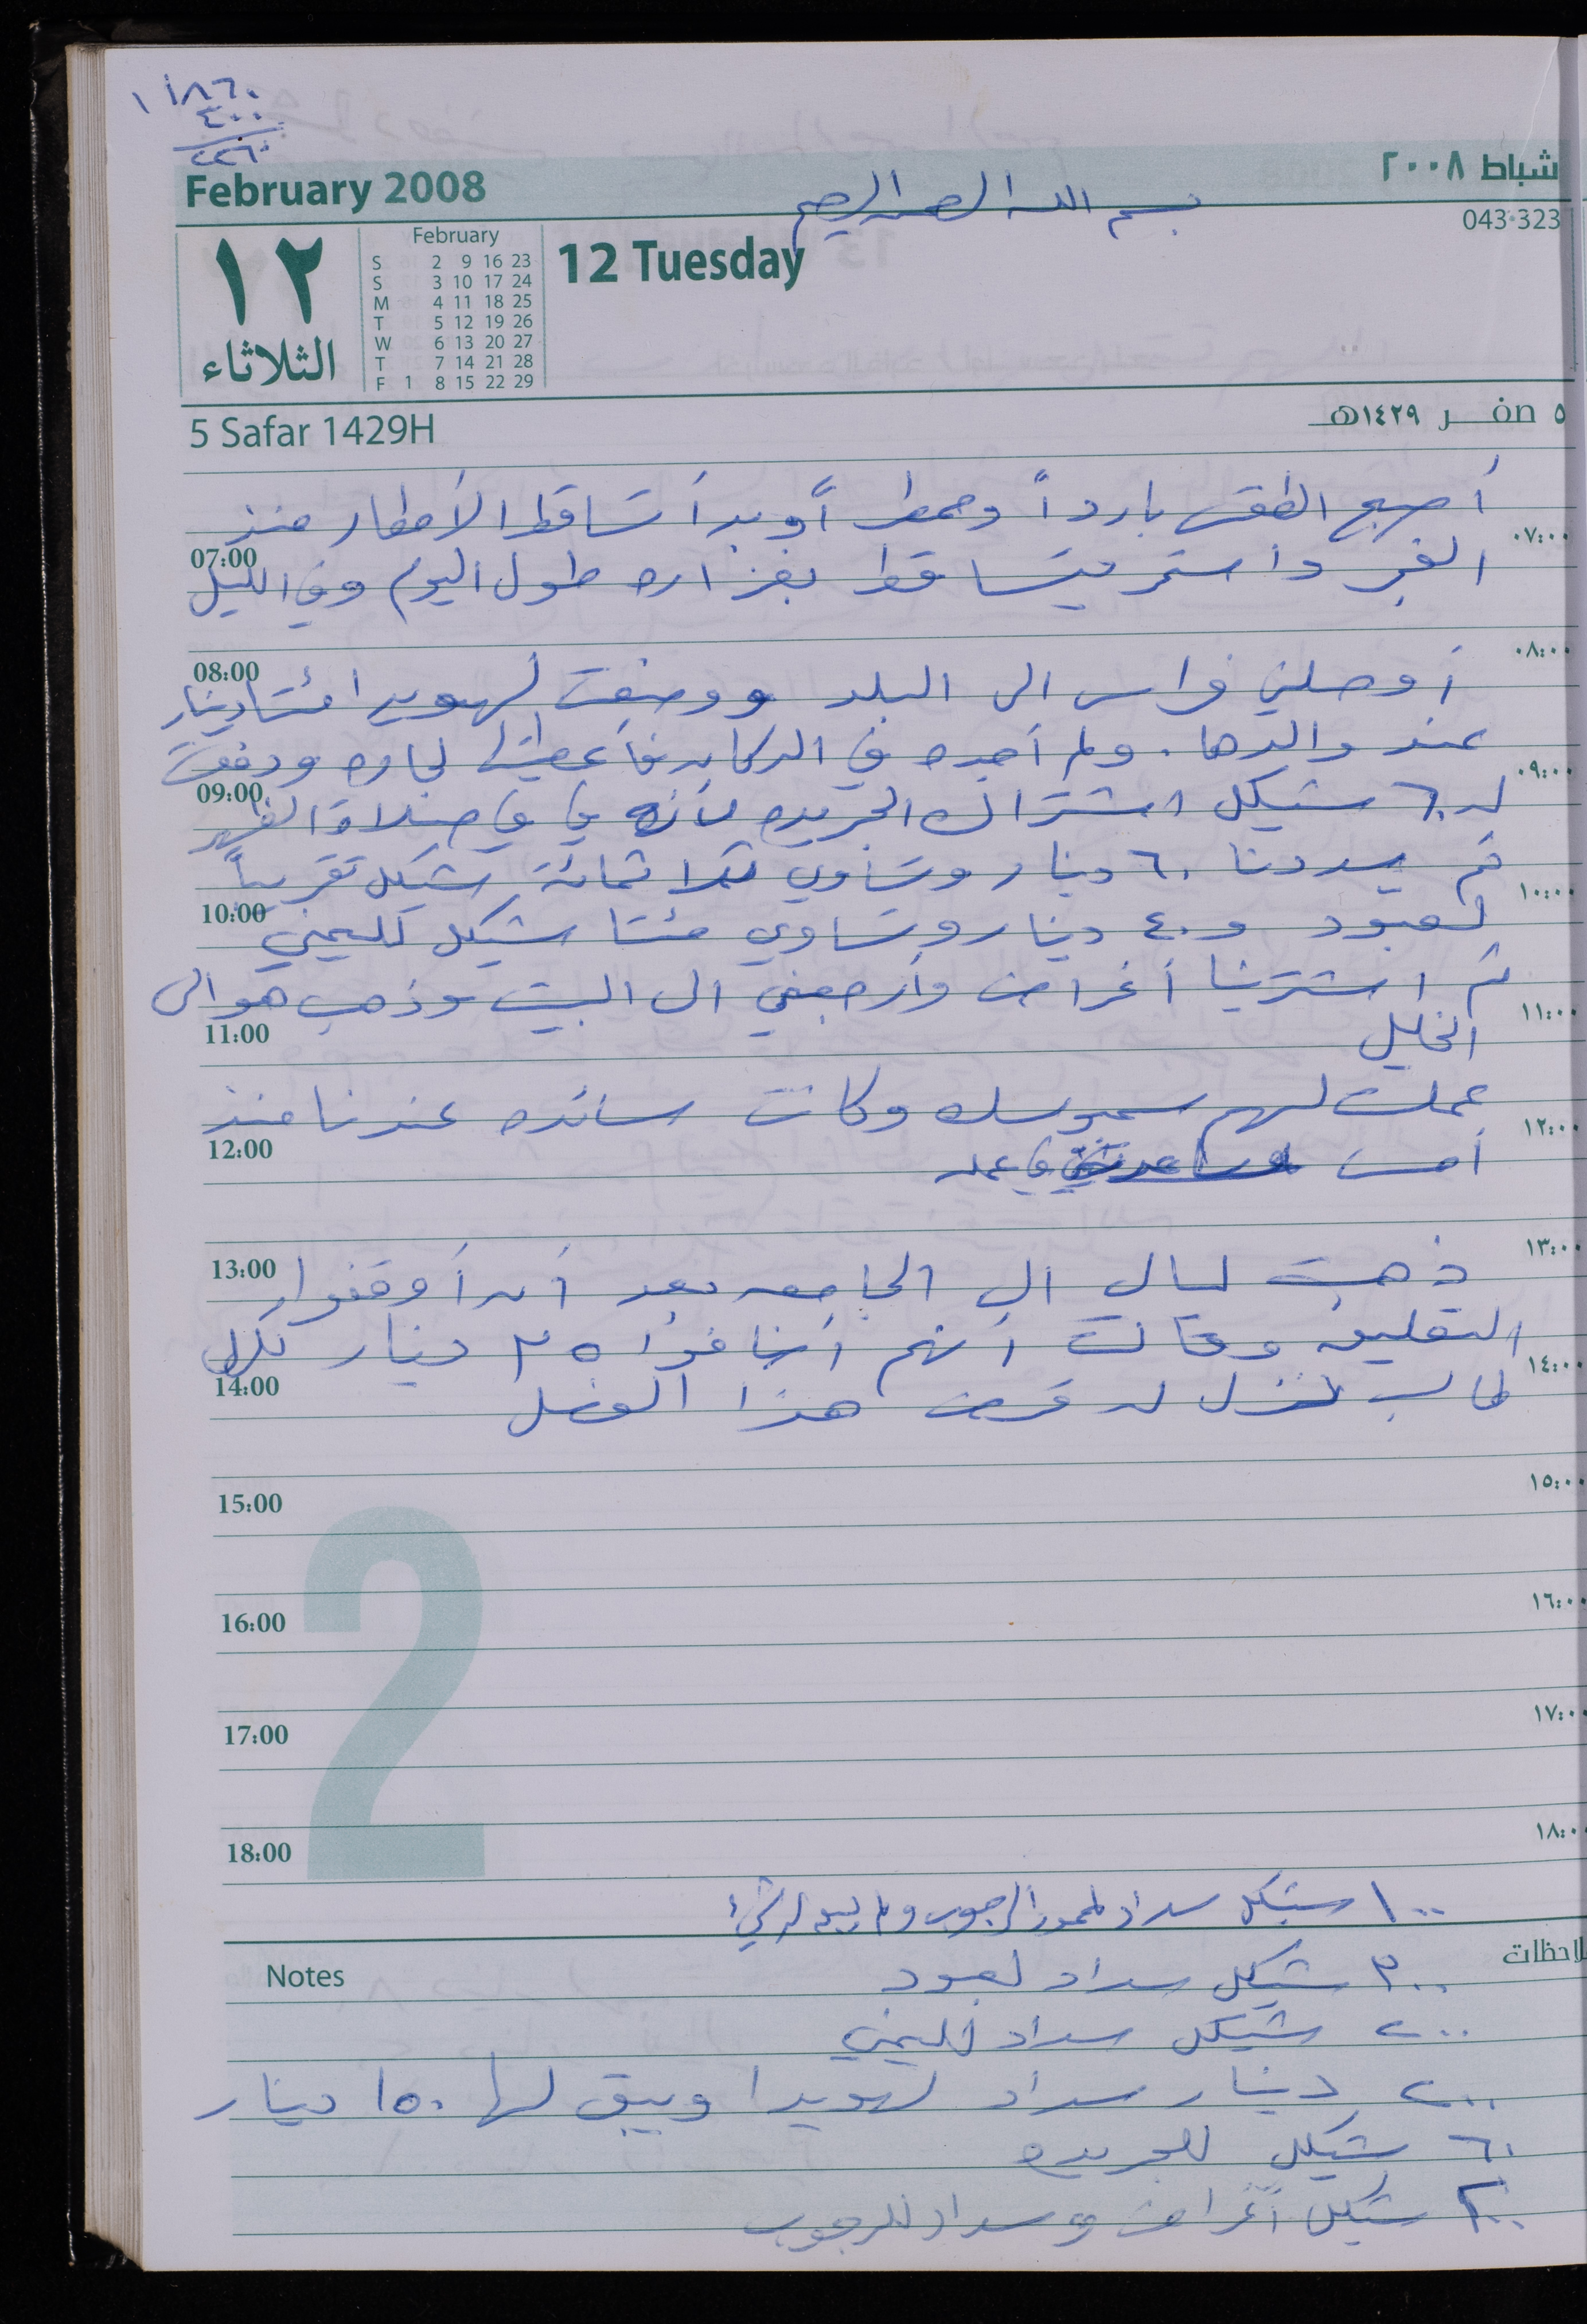 ١٨٦٠
٤٠٠
٢٢٦٠
February 2008
شباط ٢٠٠٨
بسم الله الرحمن الرحيم
043·323
١٢
الثلاثاء
February
S 2 9 16 23
S 3 10 17 24
M 4 11 18 25
T 5 12 19 26
W 6 13 20 27
T 7 14 21 28
F 1 8 15 22 29
12 Tuesday
5 Safar 1429H
٥ صفر ١٤٢٩هـ
أصبح الطقس بارداً وممطراً وبدأ تساقط الأمطار منذ
07:00 ٠٧:٠٠
الفجر واستمر يتساقط بغزاره طول اليوم وفي الليل
08:00 ٠٨:٠٠
أوصلني فراس الى البلد ووضعت لهويدا مئتا دينار
عند والدها. ولم أجده في الدكان فأعطيتها لجاره ودفعت
09:00 ٠٩:٠٠
له ٦٠ شيكل اشتراك الجريده لأنه في صلاة الظهر
ثم سددنا ٦٠ دينار وتساوي ثلاثمائة شيكل تقريباً
10:00 ١٠:٠٠
لعبود و٤٠ دينار وتساوي مئتا شيكل لليمني
ثم اشترينا أغراض وأرجعني الى البيت وذهب هو الى
11:00 ١١:٠٠
الخليل
عملت لهم سمبوسك وكانت سائده عندنا منذ
12:00 ١٢:٠٠
أمس في عمله
13:00 ١٣:٠٠
ذهبت ليال الى الجامعه بعد أن أوقفوا
التعليق وقالت أنهم أضافوا ٣٥ دينار لكل
14:00 ١٤:٠٠
طالب نزل له قرض هذا الفصل
15:00 ١٥:٠٠
16:00 ١٦:٠٠
17:00 ١٧:٠٠
18:00 ١٨:٠٠
2
١٠٠ شيكل سداد لمحمود الرجوب ولم يبق له شيء
Notes
لاحظات
٣٠٠ شيكل سداد لعبود
٢٠٠ شيكل سداد لليمني
٢٠٠ دينار سداد لهويدا ويبقى لها ١٥٠ دينار
٦٠ شيكل للجريده
شيكل أغراض وسداد للرجوب